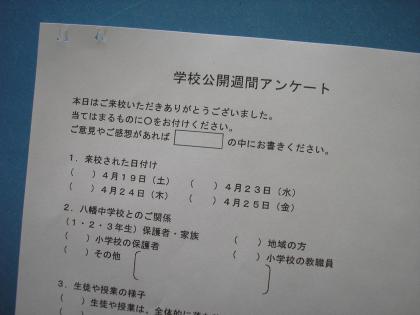 学校公開週間アンケート
本日はご来校いただきありがとうございました。
当てはまるものに○をお付けください。
ご意見やご感想があれば の中にお書きください。
1．来校された日付け
（　）4月19日（土）　（　）4月23日（水）
（　）4月24日（木）　（　）4月25日（金）
2．八幡中学校とのご関係
（1・2・3年生）保護者・家族　（　）地域の方
（　）小学校の保護者　（　）小学校の教職員
（　）その他
3．生徒や授業の様子
（　）生徒や授業は、全体的に